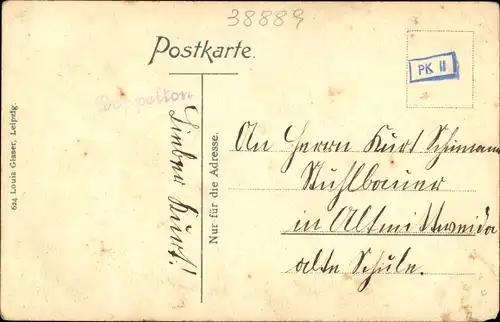 38889
Postkarte.
PK II
Doppelton
624 Louis Glaser, Leipzig.
Lieber Kurt!
Nur für die Adresse.
An Herrn Kurt
Stuhlbauer
in Altmittweida
alte Schule.